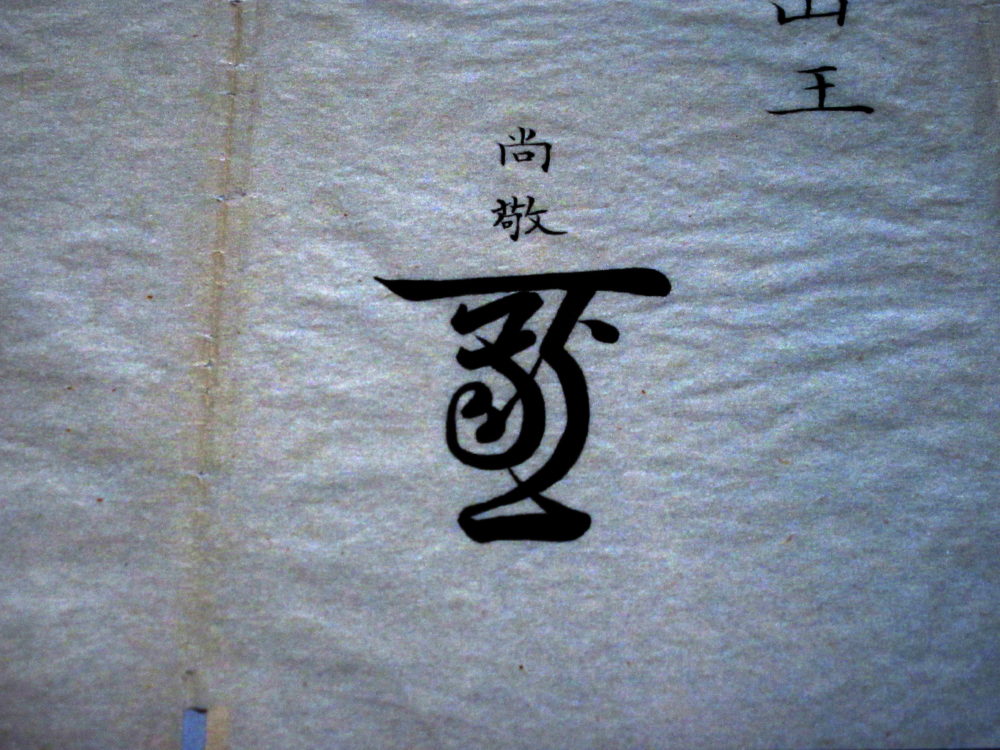 山王
尚敬